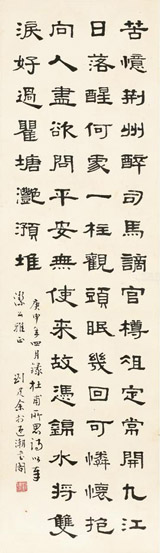 苦憶荆州醉司馬謫官樽俎定常開九江
日落醒何處一柱觀頭眠幾回可憐懷抱
向人盡欲問平安無使來故憑錦水將雙
淚好過瞿塘灔澦堆
庚申年四月錄杜甫所思詩以奉
潔公雅正